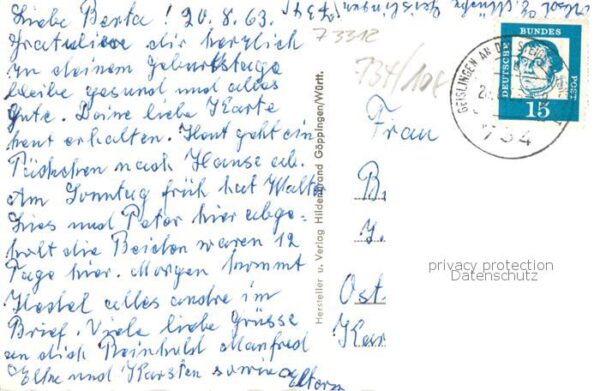 Liebe Berta! 20.8.63.
Gratuliere dir herzlich
zu deinem Geburtstage
bleibe gesund und alles
Gute. Deine liebe Karte
heut erhalten. Heut geht ein
Päckchen nach Hause ab.
Am Sonntag früh hat Walter
Lies und Peter hier abge-
holt die Beiden waren 12
Tage hier. Morgen kommt
alles andre im
Brief. Viele liebe Grüsse
an dich Reinhold Manfred
Elke und Karsten sowie Eltern
73312
734/108
Hersteller u. Verlag Hildenbrand Göppingen/Württ.
Frau
B.
J.
Ost.
Kar
GEISLINGEN AN DER STEIGE
734
DEUTSCHE BUNDESPOST
15
privacy protection
Datenschutz